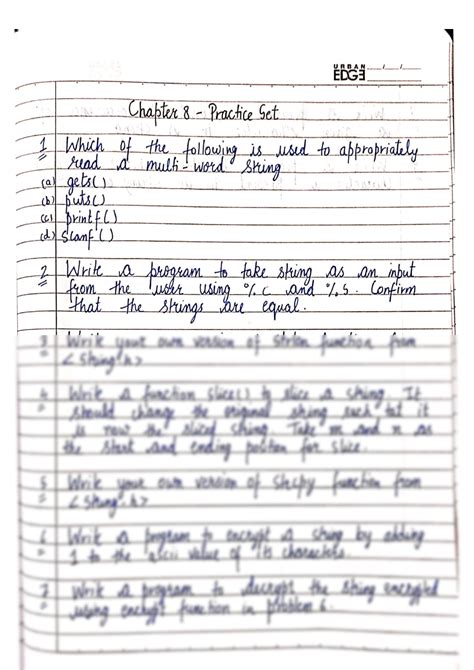 URBAN
EDGE
Chapter 8 - Practice Set
1 Which of the following is used to appropriately
read a multi-word string
(a) gets()
(b) puts()
(c) printf()
(d) Scanf()
2 Write a program to take string as an input
from the user using %c and %s. Confirm
that the strings are equal.
3 Write your own version of strlen function from
<string.h>
4 Write a function slice() to slice a string. It
should change the original string such tat it
is now the sliced string. Take m and n as
the start and ending position for slice.
5 Write your own version of strcpy function from
<string.h>
6 Write a program to encrypt a string by adding
1 to the ascii value of its characters.
7 Write a program to decrypt the string encrypted
using encrypt function in problem 6.